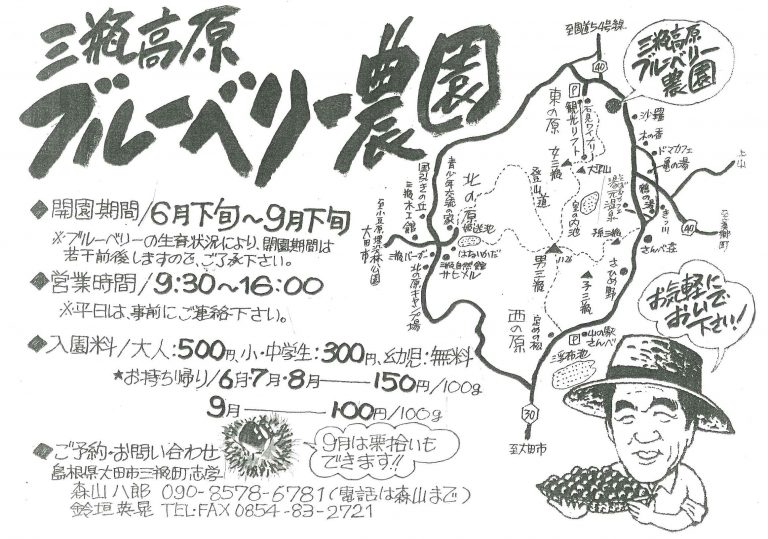 三瓶高原
ブルーベリー農園
◆開園期間/6月下旬〜9月下旬
※ブルーベリーの生育状況により、開園期間は
若干前後しますので、ご了承下さい。
◆営業時間/9:30〜16:00
※平日は、事前にご連絡下さい。
◆入園料/大人:500円、小・中学生:300円、幼児:無料
★お持ち帰り/6月・7月・8月──150円/100g
9月──100円/100g
◆ご予約・お問い合わせ
島根県大田市三瓶町志学
森山八郎 090-8578-6781(電話は森山まで)
鈴垣英晃 TEL・FAX 0854-83-2721
9月は栗拾いも
できます!!
至国道54号線
40
三瓶高原
ブルーベリー
農園
P
石見ワイナリー
観光リフト
東の原
女三瓶
大平山
沙羅
木の香
ドマカフェ
亀の湯
鶴の湯
上山
40
至美郷町
きっ川
さんべ荘
三瓶温泉
孫三瓶
室の内池
登山道
北の原
姫逃池
青少年交流の家
国引きの丘
三瓶木工館
至小豆原埋没林公園
大田市
三瓶バーガー
はないかだ
三瓶自然館
サヒメル
北の原キャンプ場
男三瓶
1126
子三瓶
さひめ野
西の原
定めの松
山の駅
さんべ
P
浮布池
30
至大田市
お気軽に
おいで
下さい!